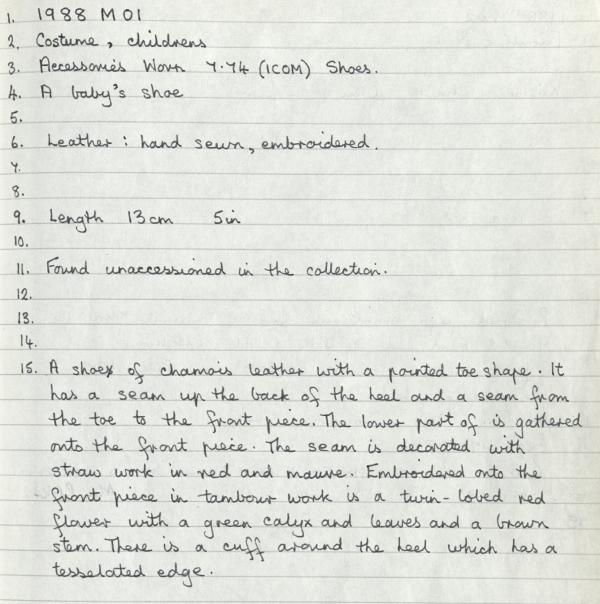 1. 1988 M 01
2. Costume, childrens
3. Accessories Worn 7.74 (ICOM) Shoes.
4. A baby's shoe
5.
6. Leather : hand sewn, embroidered.
7.
8.
9. Length 13cm 5in
10.
11. Found unaccessioned in the collection.
12.
13.
14.
15. A shoe of chamois leather with a pointed toe shape. It
has a seam up the back of the heel and a seam from
the toe to the front piece. The lower part of is gathered
onto the front piece. The seam is decorated with
straw work in red and mauve. Embroidered onto the
front piece in tambour work is a twin-lobed red
flower with a green calyx and leaves and a brown
stem. There is a cuff around the heel which has a
tesselated edge.